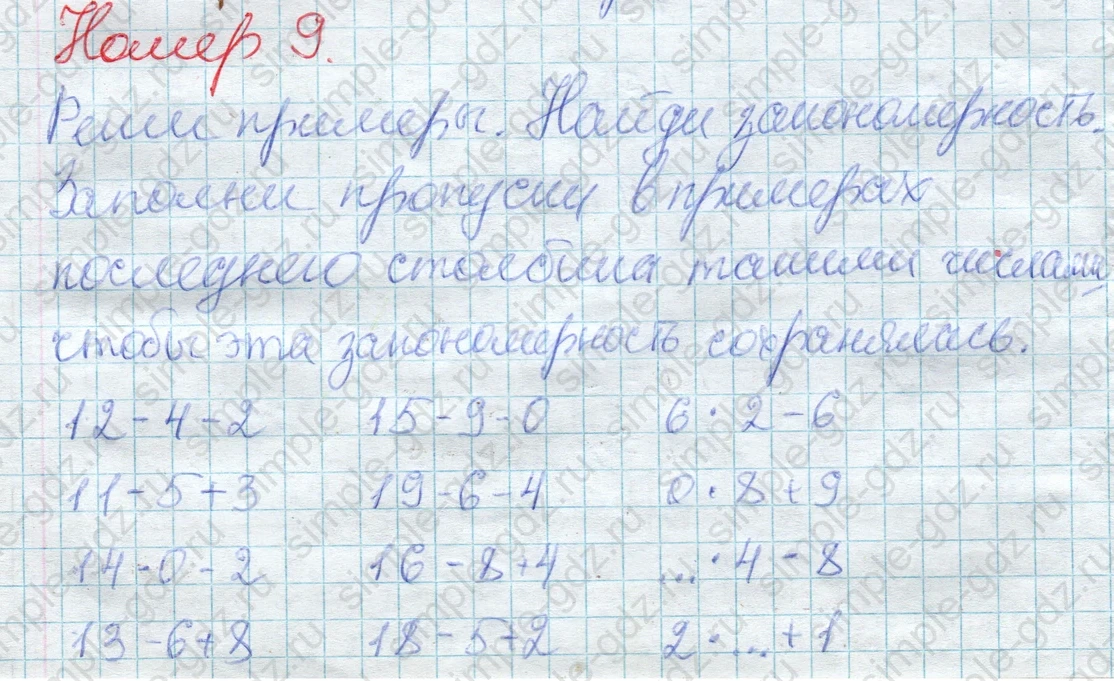 Номер 9.
Реши примеры. Найди закономерность.
Заполни пропуски в примерах
последнего столбика такими числами,
чтобы эта закономерность сохранялась.
12-4-2 15-9-0 6·2-6
11-5+3 19-6-4 0·8+9
14-0-2 16-8+4 ...·4-8
13-6+8 18-5+2 2·...+1